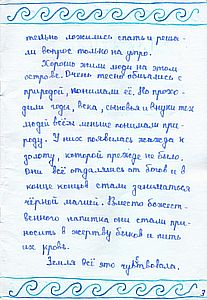 тельно ложились спать и реша-
ли вопрос только на утро.
Хорошо жили люди на этом
острове. Очень тесно общались с
природой, понимали её. Но прохо-
дили годы, века, сыновья и внуки тех
людей всё меньше понимали при-
роду. У них появилась жажда к
золоту, которой прежде не было.
Они всё отдалялись от богов и в
конце концов стали заниматься
чёрной магией. Вместо божест-
венного напитка они стали при-
носить в жертву быков и пить
их кровь.
Земля всё это чувствовала.
3